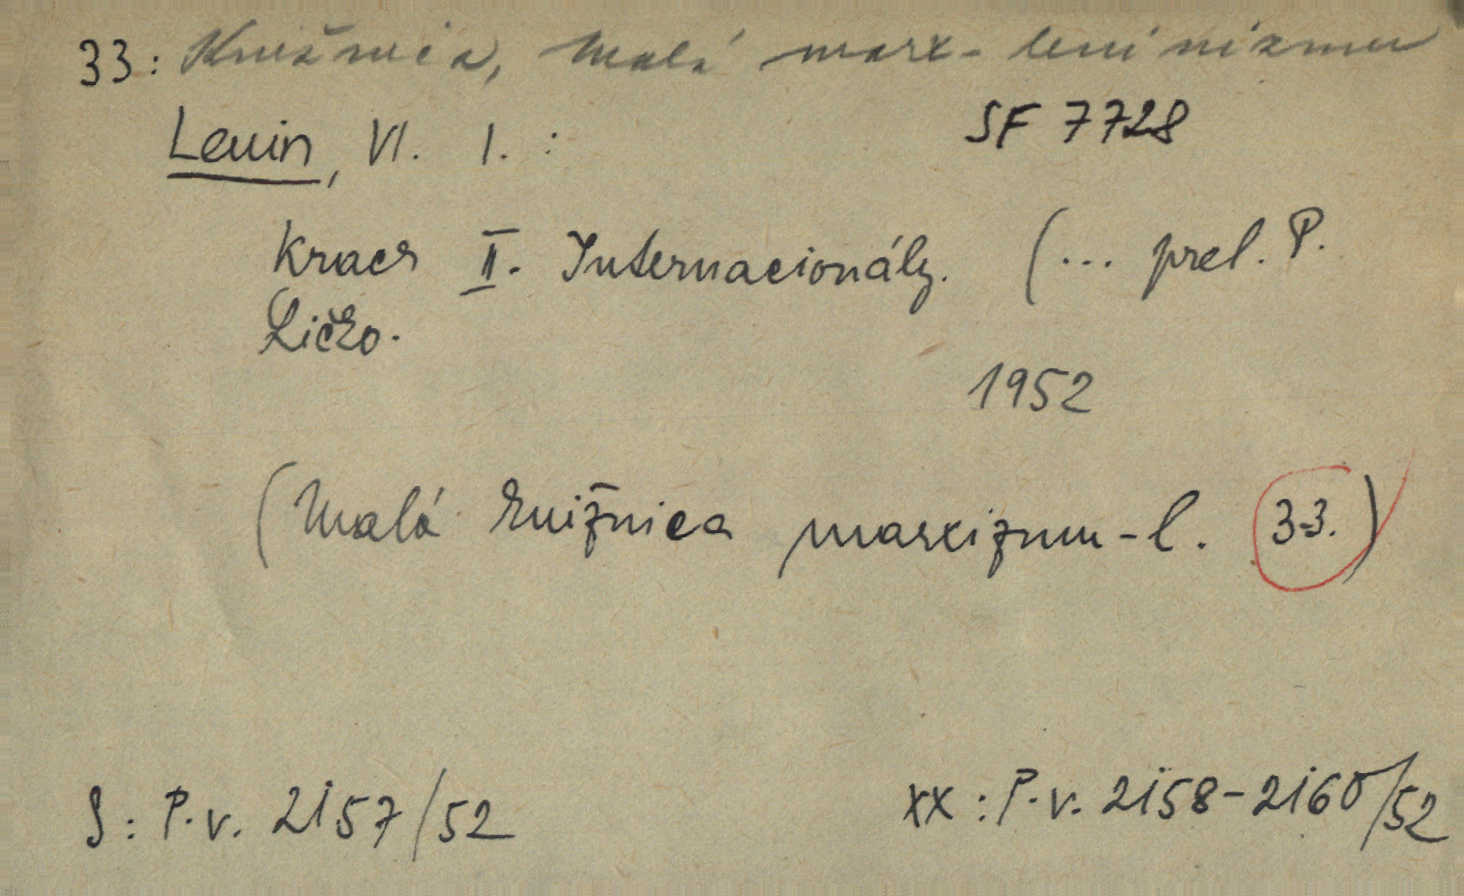 33: Knižnica, Malá marx-leninizmu
SF 7728
Lenin, Vl. I. :
Krach II. Internacionály. (... prel. P.
Ličko.
1952
(Malá knižnica marxizmu-l. 33.)
S: P.v. 2157/52
xx: P.v. 2158-2160/52